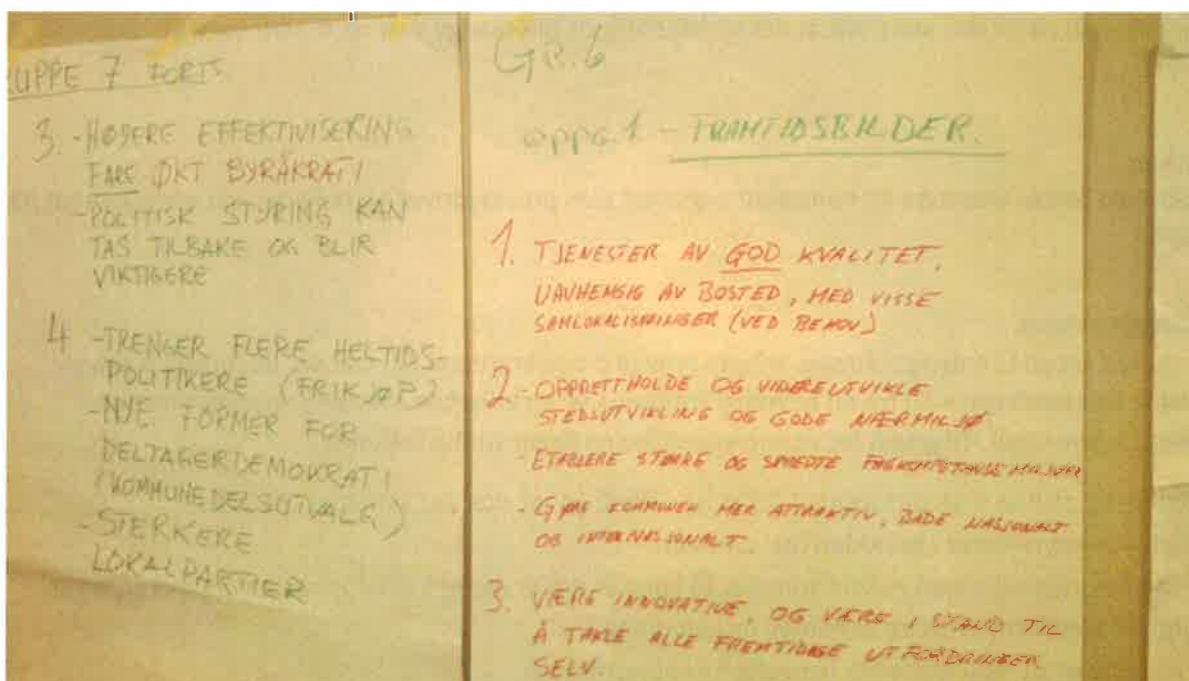 UPPE 7 FORTS
3. - HØYERE EFFEKTIVISERING
FARE ØKT BYRÅKRATI
- POLITISK STYRING KAN
TAS TILBAKE OG BLIR
VIKTIGERE
4 - TRENGER FLERE HELTIDS-
POLITIKERE (FRIKJØP)
- NYE FORMER FOR
DELTAGERDEMOKRATI
(KOMMUNEDELSUTVALG)
- STERKERE
LOKALPARTIER
GR. 6
oppg. 1 - FRAMTIDSBILDER.
1. TJENESTER AV GOD KVALITET,
UAVHENGIG AV BOSTED, MED VISSE
SAMLOKALISERINGER (VED BEHOV)
2. - OPPRETTHOLDE OG VIDEREUTVIKLE
STEDSUTVIKLING OG GODE NÆRMILJØ
- ETABLERE STØRRE OG SPREDTE FAGKOMPETANSEMILJØER
- GJØRE KOMMUNEN MER ATTRAKTIV, BÅDE NASJONALT
OG INTERNASJONALT
3. VÆRE INNOVATIVE, OG VÆRE I STAND TIL
Å TAKLE ALLE FREMTIDIGE UTFORDRINGER
SELV.